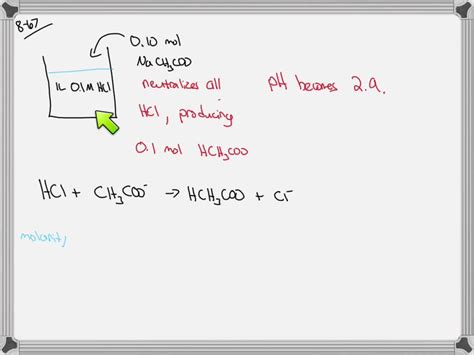 8-67
0.10 mol
NaCH₃COO
1L 0.1M HCl
neutralizes all
HCl, producing
0.1 mol HCH₃COO
pH becomes 2.9.
HCl + CH₃COO⁻ → HCH₃COO + Cl⁻
molarity